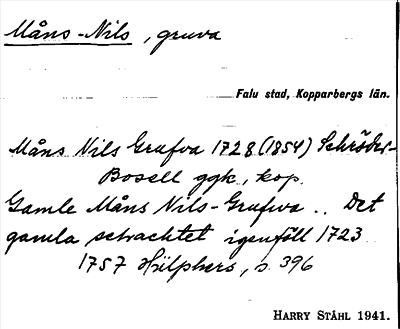 Måns-Nils, gruva
Falu stad, Kopparbergs län.
Måns Nils Grufva 1728 (1854) Schröder-
Bosell ggk, kop.
Gamle Måns Nils-Grufwa .. Det
gamla schachtet igenföll 1723
1757 Hülphers, s. 396
HARRY STÅHL 1941.